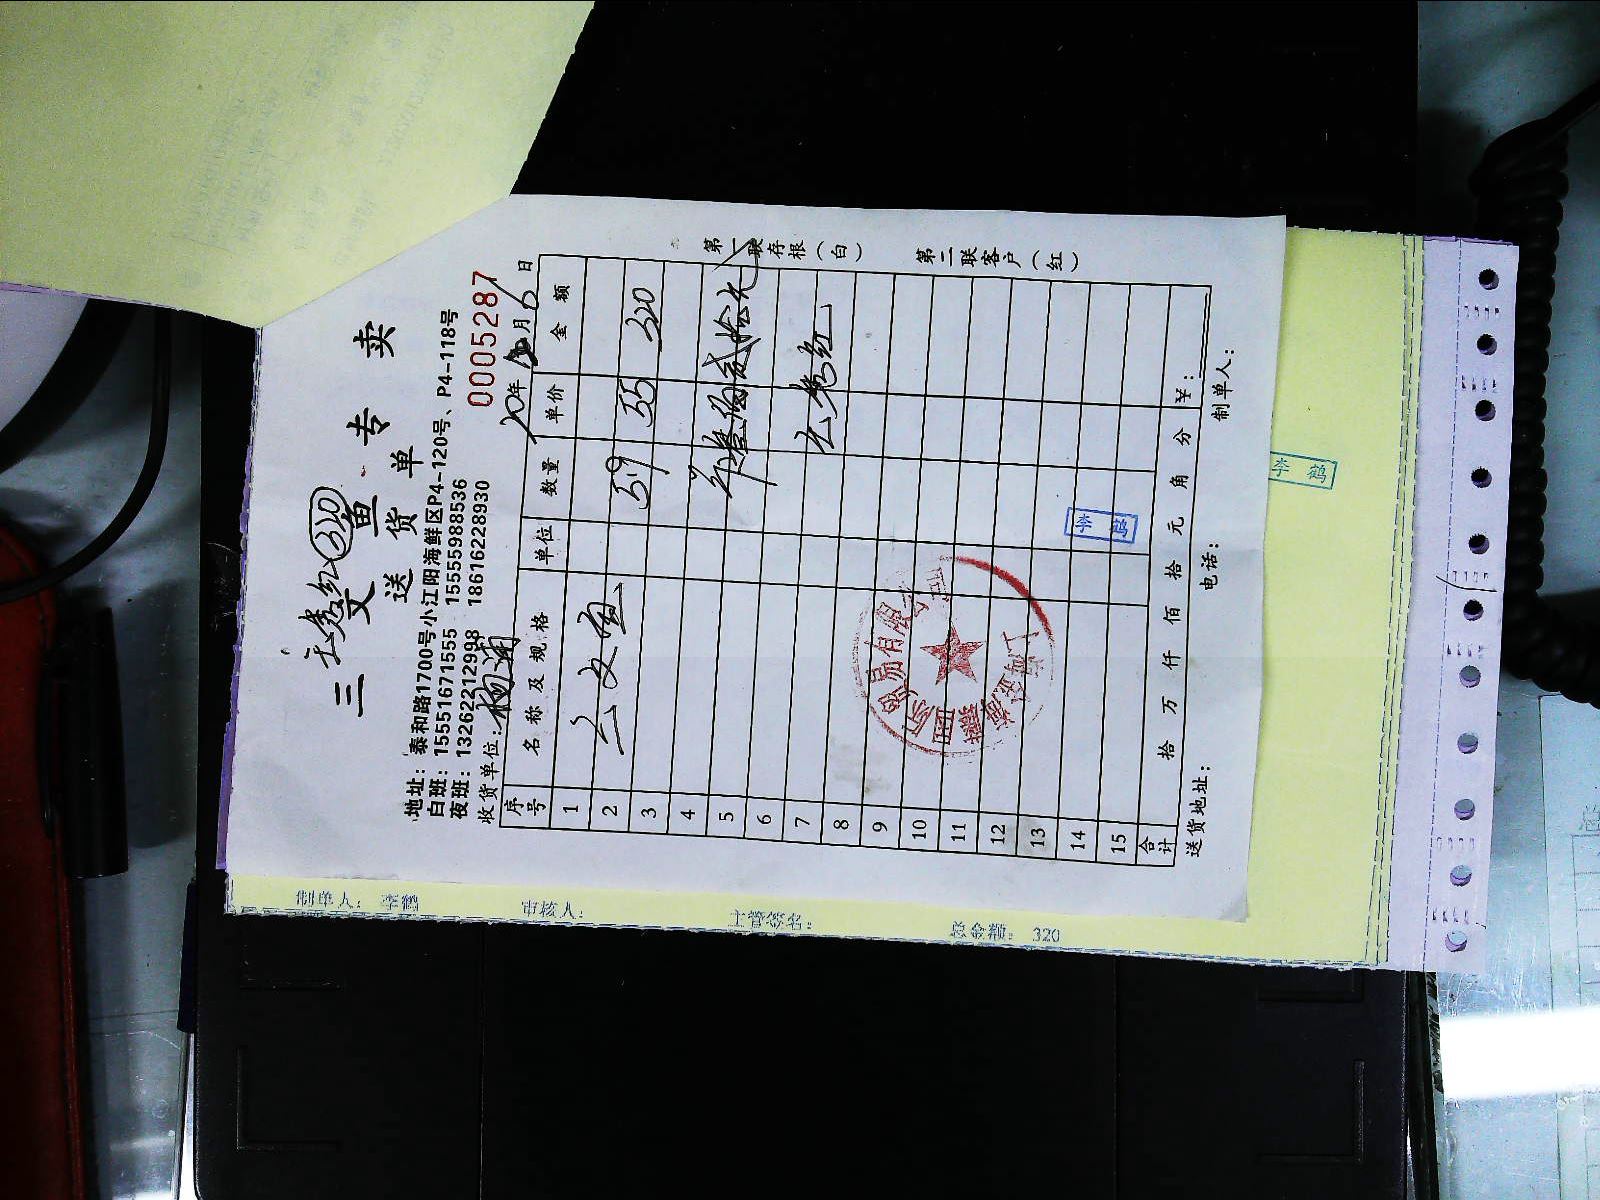 三文鱼专卖
320
送货单
地址：泰和路1700号小江阳海鲜区P4-120号、P4-118号
白班：15551671555 15555988536
夜班：13262212998 18616228930
0005287
收货单位：杨浦
20年 月6日
序号 名称及规格 单位 数量 单价 金额
1
2 三文鱼 59 55 320
3
4
5
6
7
8
9
10
11
12
13
14
15
合计 拾 万 仟 佰 拾 元 角 分 ¥：
送货地址： 电话： 制单人：
第一联存根（白）
第二联客户（红）
李鹤
李鹤
制单人： 李鹤 审核人： 主管签名： 总金额： 320